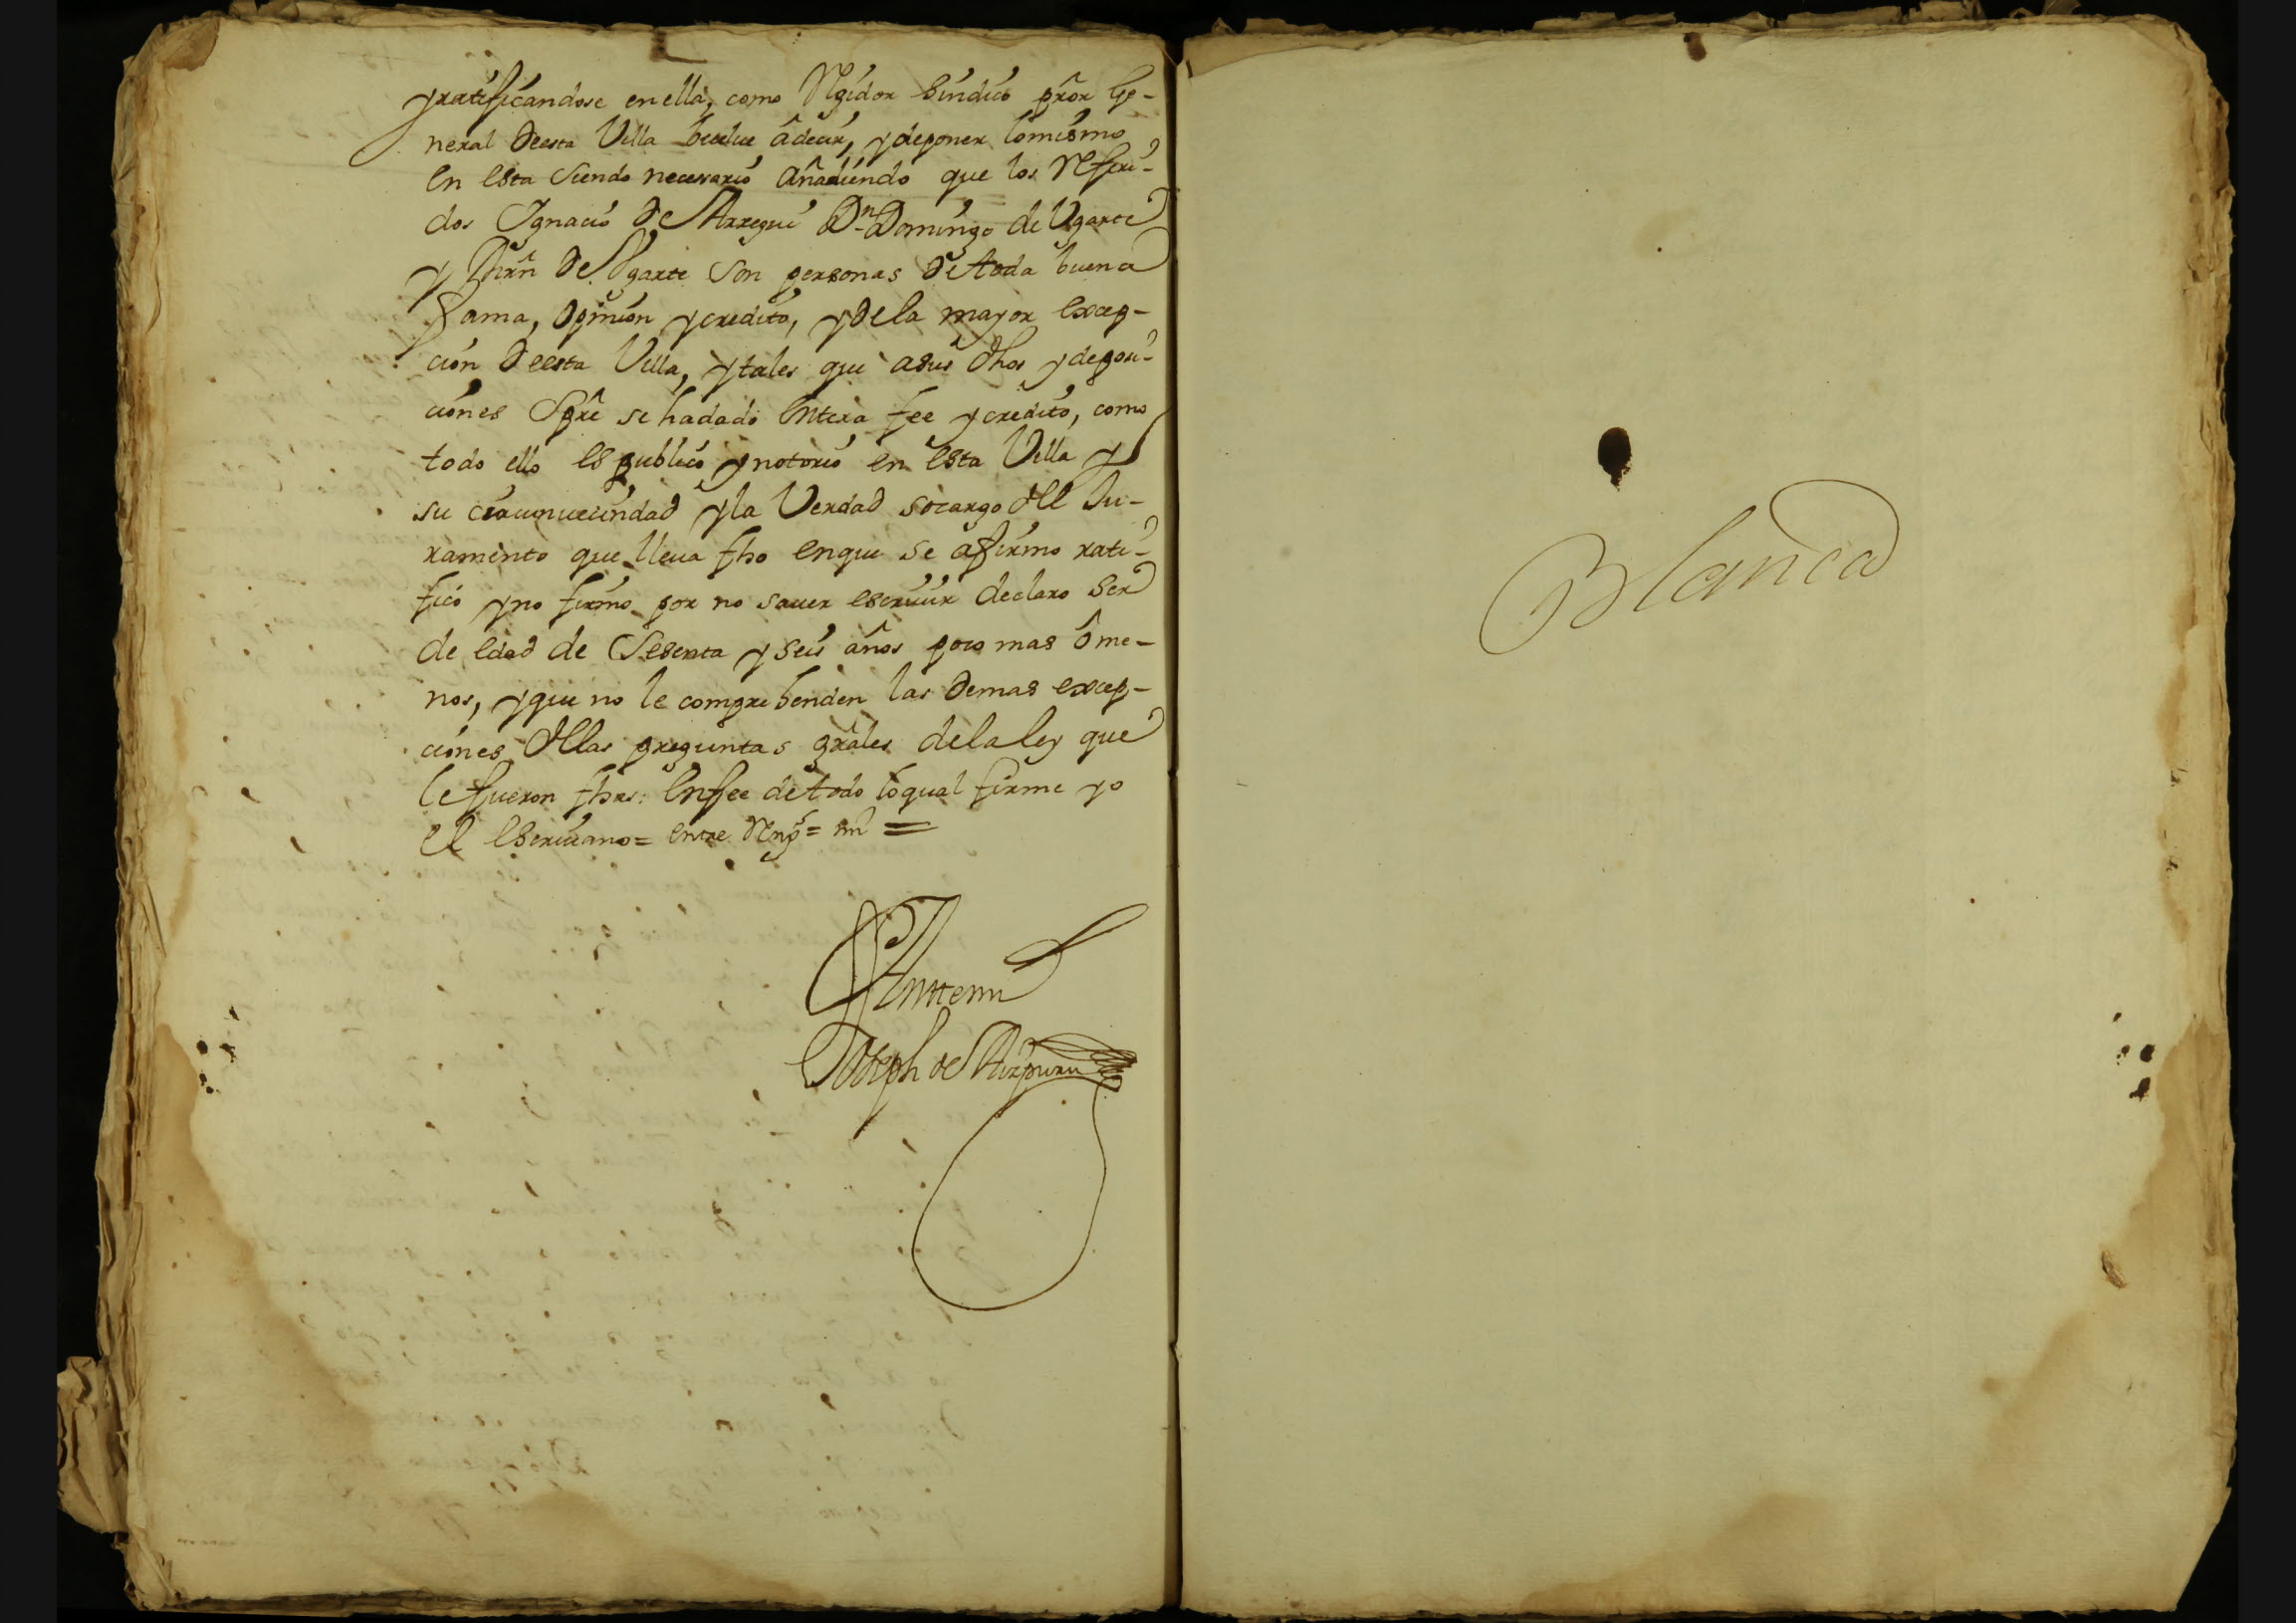 yratificandose enella, como Regidor sindico prôr Ge-
neral deesta Villa buelue âdecir, y deponer lomismo
en esta siendo necesario Añadiendo que los Referi-
dos Ignacio de Arregui Dn. Domingo de Ugarte
y de Ugarte son personas de toda buena
fama, opinion y credito, y dela mayor excep-
cion deesta Villa, y tales que asus dhos y deposi-
ciones sprê se hadado entera fee y credito, como
todo ello es publico y notorio en esta Villa y
su circunvecindad y la Verdad socargo del Ju-
ramento que lleua fho enque se afirmo rati-
fico yno firmo por no sauer escriuir declaro ser
de edad de sesenta y seis años poco mas ô me-
nos, y que no le comprehenden las demas excep-
ciones dellas preguntas grâles dela ley que
le fueron fhas: Enfee de todo loqual firme yo
el escriuano = entre Rengs = =
Antemi
Joseph de Aizpuru
Blanca